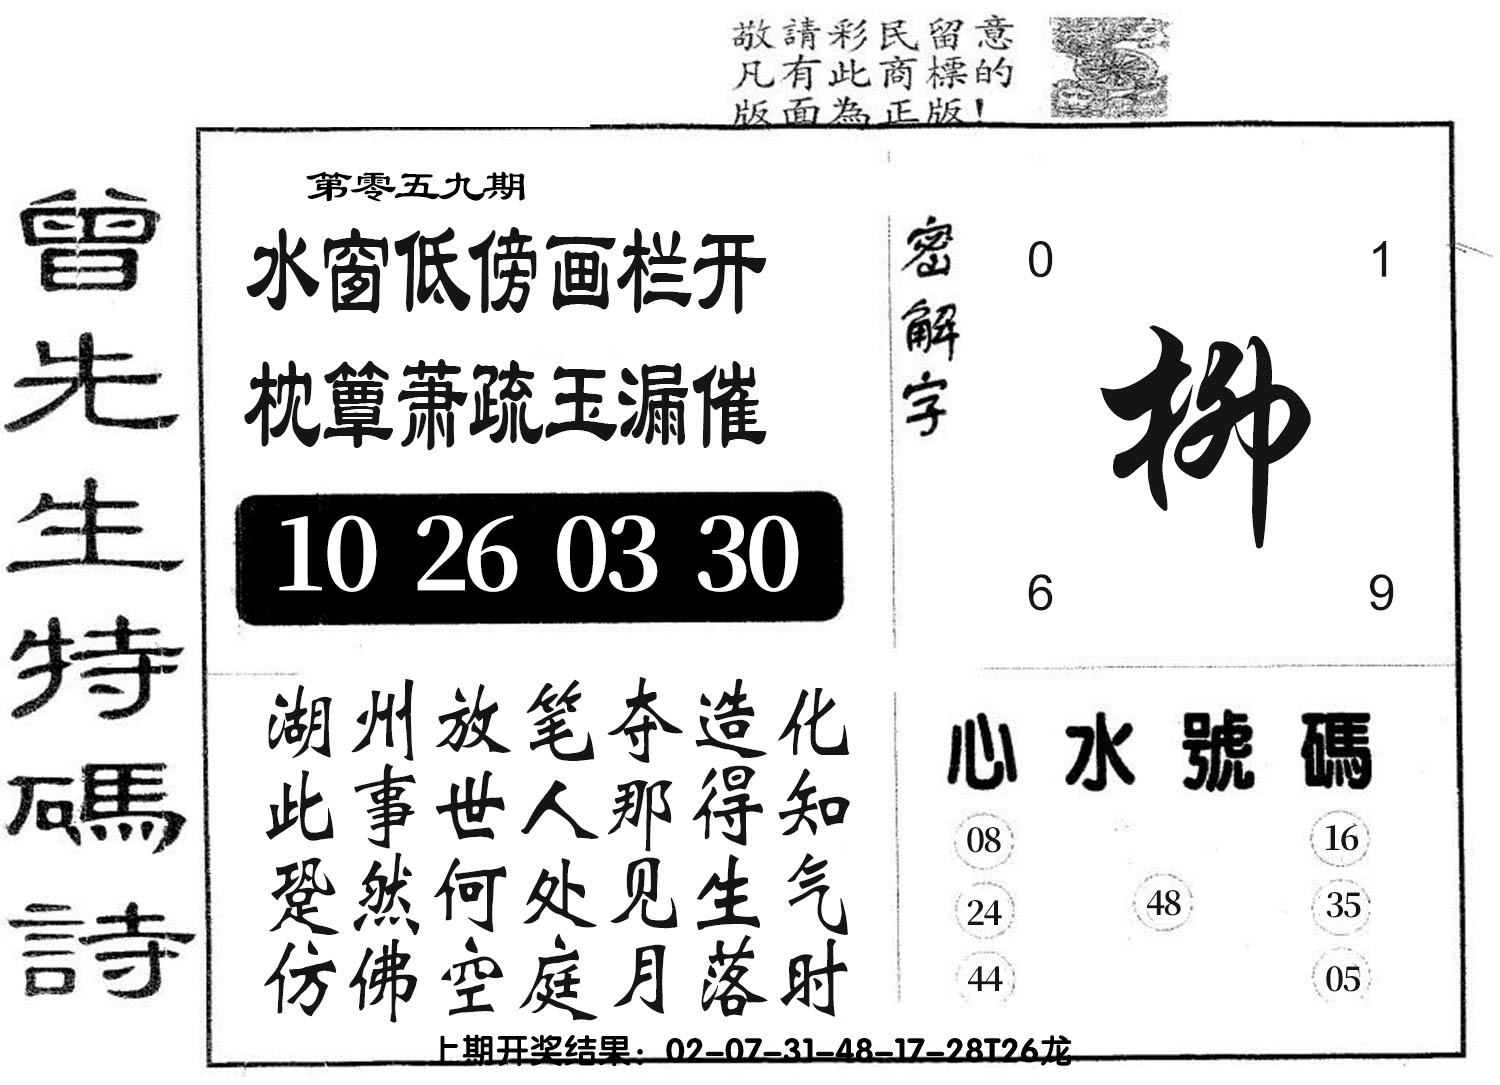 敬請彩民留意
凡有此商標的
版面為正版!
曾先生特碼詩
第零五九期
水窗低傍画栏开
枕簟萧疏玉漏催
10 26 03 30
密解字
0 1
柳
6 9
湖州放笔夺造化
此事世人那得知
跫然何处见生气
仿佛空庭月落时
心水號碼
08 16
48
24 35
44 05
上期开奖结果：02-07-31-48-17-28T26龙